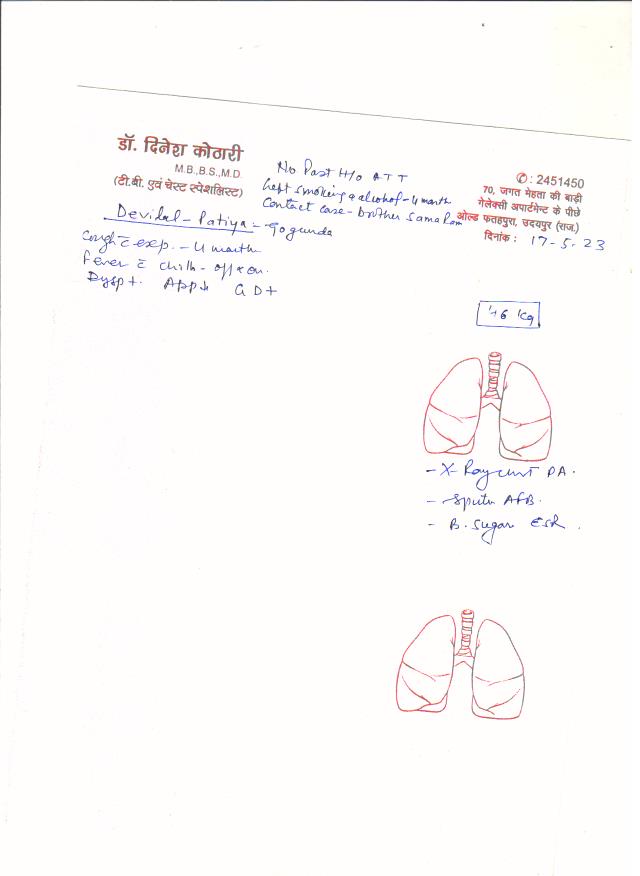 डॉ. दिनेश कोठारी
M.B.,B.S.,M.D.
(टी.बी. एवं चेस्ट स्पेशलिस्ट)
No Past H/o ATT
left smoking & alcohol - 4 month
Contact case - brother
✆: 2451450
70, जगत मेहता की बाड़ी
गेलेक्सी अपार्टमेन्ट के पीछे
ओल्ड फतहपुरा, उदयपुर (राज.)
दिनांक : 17-5-23
Devilal - Patiya - Gogunda
Cough c̄ exp. - 4 month
Fever c̄ chills - off & on.
Dysp +. App ↓ GD+
46 kg
- X-Ray chest PA.
- Sputu AFB.
- B. Sugar ESR.